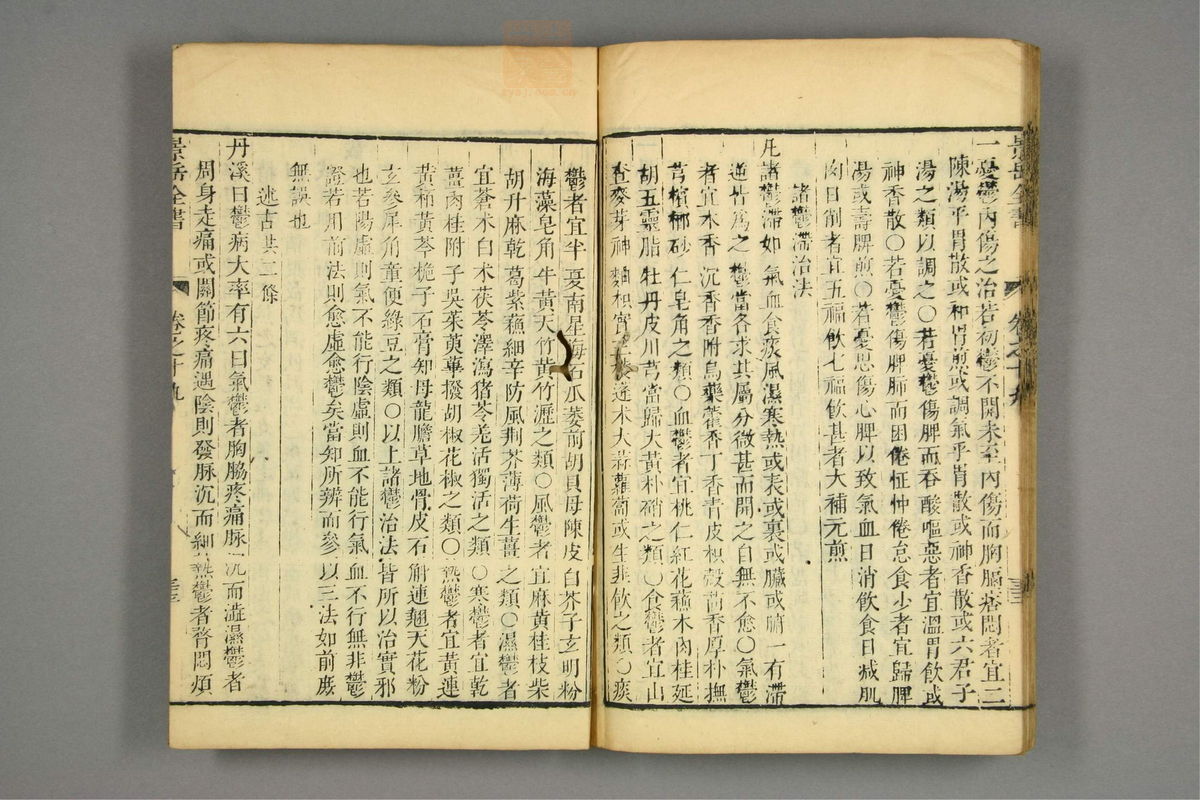 景岳全書 卷之十九
一憂鬱內傷之治若初鬱不開未至內傷而胸膈痞悶者宜二
陳湯平胃散或和胃煎或調氣平胃散或神香散或六君子
湯之類以調之〇若憂鬱傷脾而吞酸嘔惡者宜溫胃飲或
神香散〇若憂鬱傷脾肺而困倦怔忡倦怠食少者宜歸脾
湯或壽脾煎〇若憂思傷心脾以致氣血日消飲食日減肌
肉日削者宜五福飲七福飲甚者大補元煎
諸鬱滯治法
凡諸鬱滯如氣血食痰風濕寒熱或表或裏或臟或腑一有滯
逆皆爲之鬱當各求其屬分微甚而開之自無不愈〇氣鬱
者宜木香沉香香附烏藥藿香丁香青皮枳殼茴香厚朴撫
芎檳榔砂仁皂角之類〇血鬱者宜桃仁紅花蘇木肉桂延
胡五靈脂牡丹皮川芎當歸大黃朴硝之類〇食鬱者宜山
查麥芽神麯枳實三稜蓬朮大蒜蘿蔔或生韭飲之類〇痰
鬱者宜半夏南星海石瓜蔞前胡貝母陳皮白芥子玄明粉
海藻皂角牛黃天竹黃竹瀝之類〇風鬱者宜麻黃桂枝柴
胡升麻乾葛紫蘇細辛防風荆芥薄荷生薑之類〇濕鬱者
宜蒼朮白朮茯苓澤瀉猪苓羌活獨活之類〇寒鬱者宜乾
薑肉桂附子吳茱萸蓽撥胡椒花椒之類〇熱鬱者宜黃連
黃栢黃芩梔子石膏知母龍膽草地骨皮石斛連翹天花粉
玄參犀角童便綠豆之類〇以上諸鬱治法皆所以治實邪
也若陽虛則氣不能行陰虛則血不能行氣血不行無非鬱
證若用前法則愈虛愈鬱矣當知所辨而參以三法如前庶
無誤也
述古共二條
丹溪曰鬱病大率有六曰氣鬱者胸脇疼痛脉沉而澁濕鬱者
周身走痛或關節疼痛遇陰則發脉沉而細熱鬱者瞀悶煩
景岳全書 卷之十九